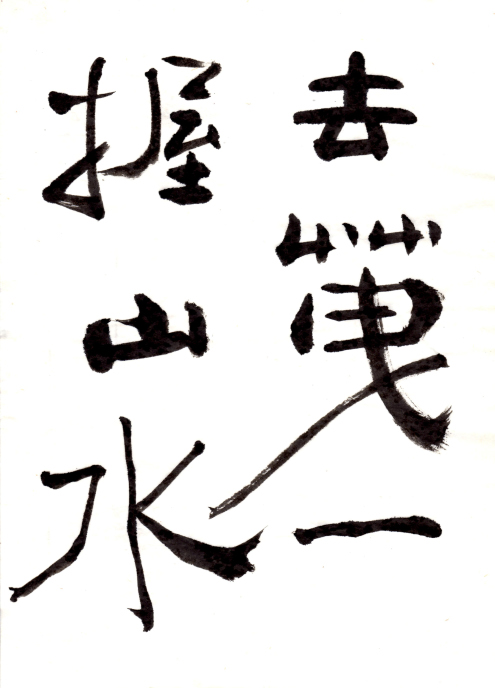 去一
握山水